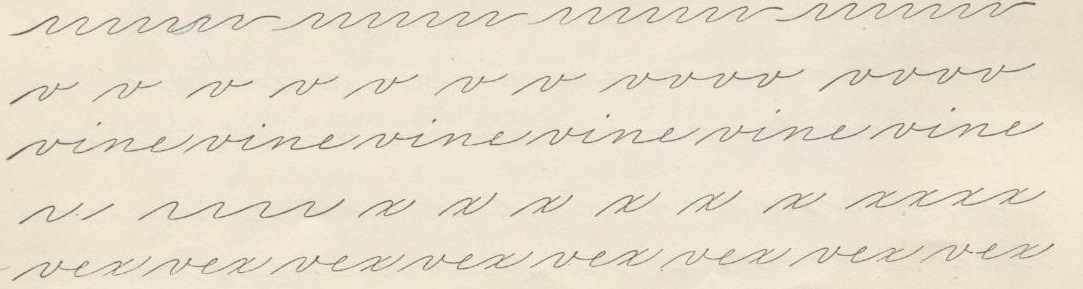 v v v v v v v vvvv vvvv
vine vine vine vine vine vine
x x x x x x xxxx
vex vex vex vex vex vex vex vex